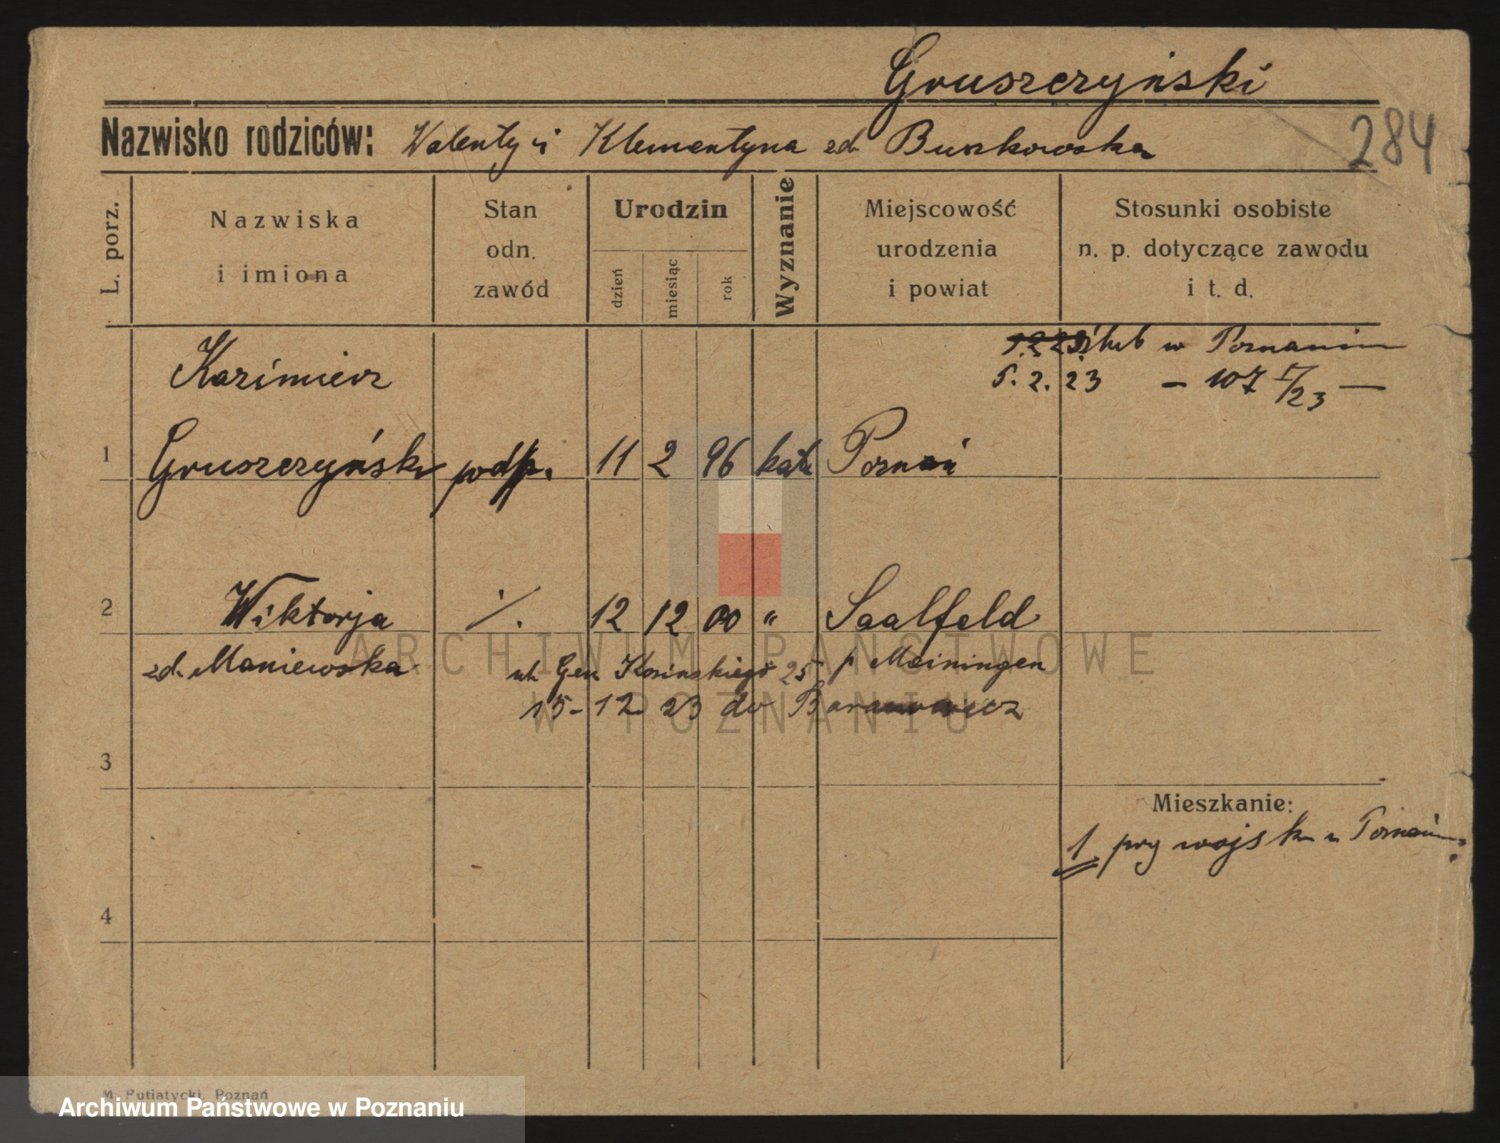 Gruszczyński
Nazwisko rodziców: Walenty i Klementyna zd. Buszkowska
284
L. porz.
Nazwiska
i imiona
Stan
odn.
zawód
Urodzin
dzień
miesiąc
rok
Wyznanie
Miejscowość
urodzenia
i powiat
Stosunki osobiste
n. p. dotyczące zawodu
i t. d.
ślub w Poznaniu
5.2.23 – 107 I/23 –
Kazimierz
1 Gruszczyński podp. 11 2 96 kat. Poznań
2 Wiktorja ·/. 12 12 00 " Saalfeld
zd. Maniewska p Meiningen
ul. Gen Kosińskiego 25
15-12 23 do Baranowicz
3
Mieszkanie:
1. przy wojsk w Poznaniu
4
M. Putiatycki, Poznań
ARCHIWUM PAŃSTWOWE
W POZNANIU
Archiwum Państwowe w Poznaniu